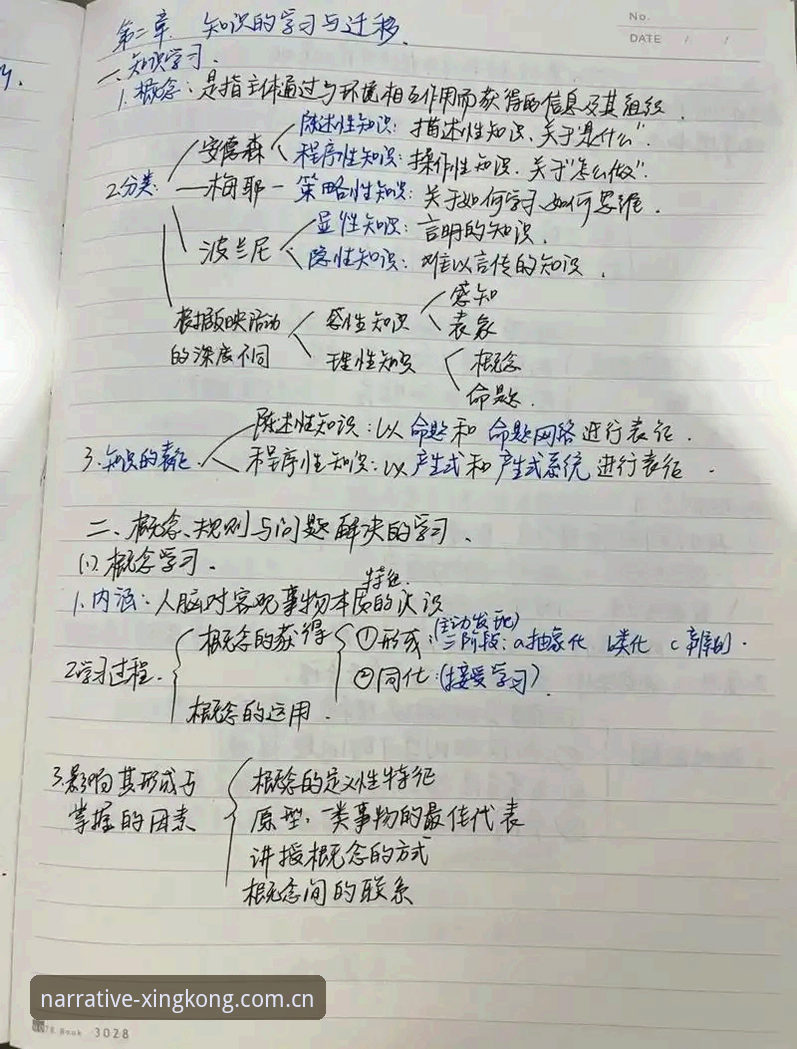 No.
DATE / /
第二章、知识的学习与迁移.
一、知识学习.
1. 概念: 是指主体通过与环境相互作用而获得的信息及其组织.
安德森 陈述性知识: 描述性知识、关于"是什么".
程序性知识: 操作性知识. 关于"怎么做".
2.分类: 梅耶 - 策略性知识: 关于如何学习、如何思维.
波兰尼 显性知识: 言明的知识.
隐性知识: 难以言传的知识.
根据反映活动的深度不同 感性知识 感知
表象
理性知识 概念
命题.
3. 知识的表征. 陈述性知识: 以命题和命题网络进行表征.
程序性知识: 以产生式和产生式系统进行表征.
二、概念、规则与问题解决的学习.
(1) 概念学习.
特征.
1. 内涵: 人脑对客观事物本质的认识
(主动发现)
2学习过程. 概念的获得 ①形成: 三阶段: a抽象化 b类化 c辨别.
②同化: (接受学习).
概念的运用.
3.影响其形成与掌握的因素 概念的定义性特征
原型, 一类事物的最佳代表
讲授概念的方式
概念间的联系
narrative-xingkong.com.cn
NOTE Book 3028